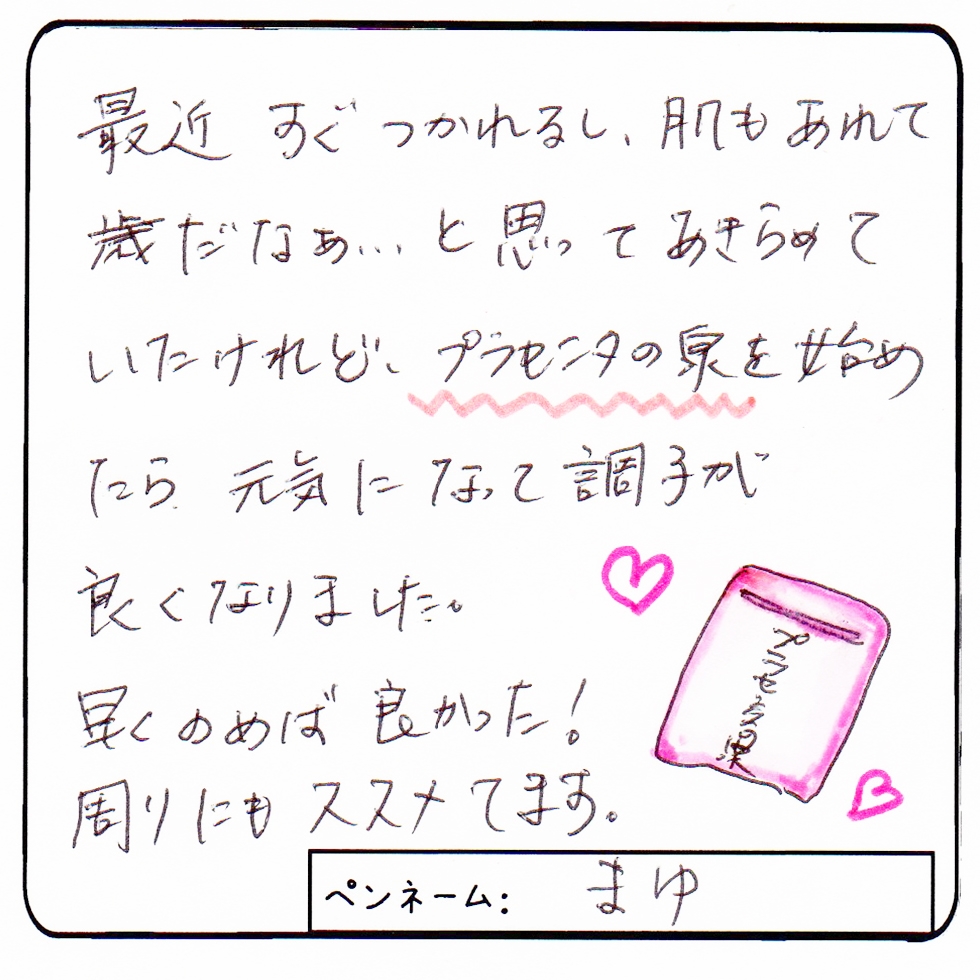 最近 すぐ つかれるし、肌もあれて
歳だなぁ... と思ってあきらめて
いたけれど、プラセンタの泉を始め
たら 元気になって調子が
良くなりました。
早くのめば良かった!
周りにもススメてます。
プラセンタの泉
ペンネーム: まゆ